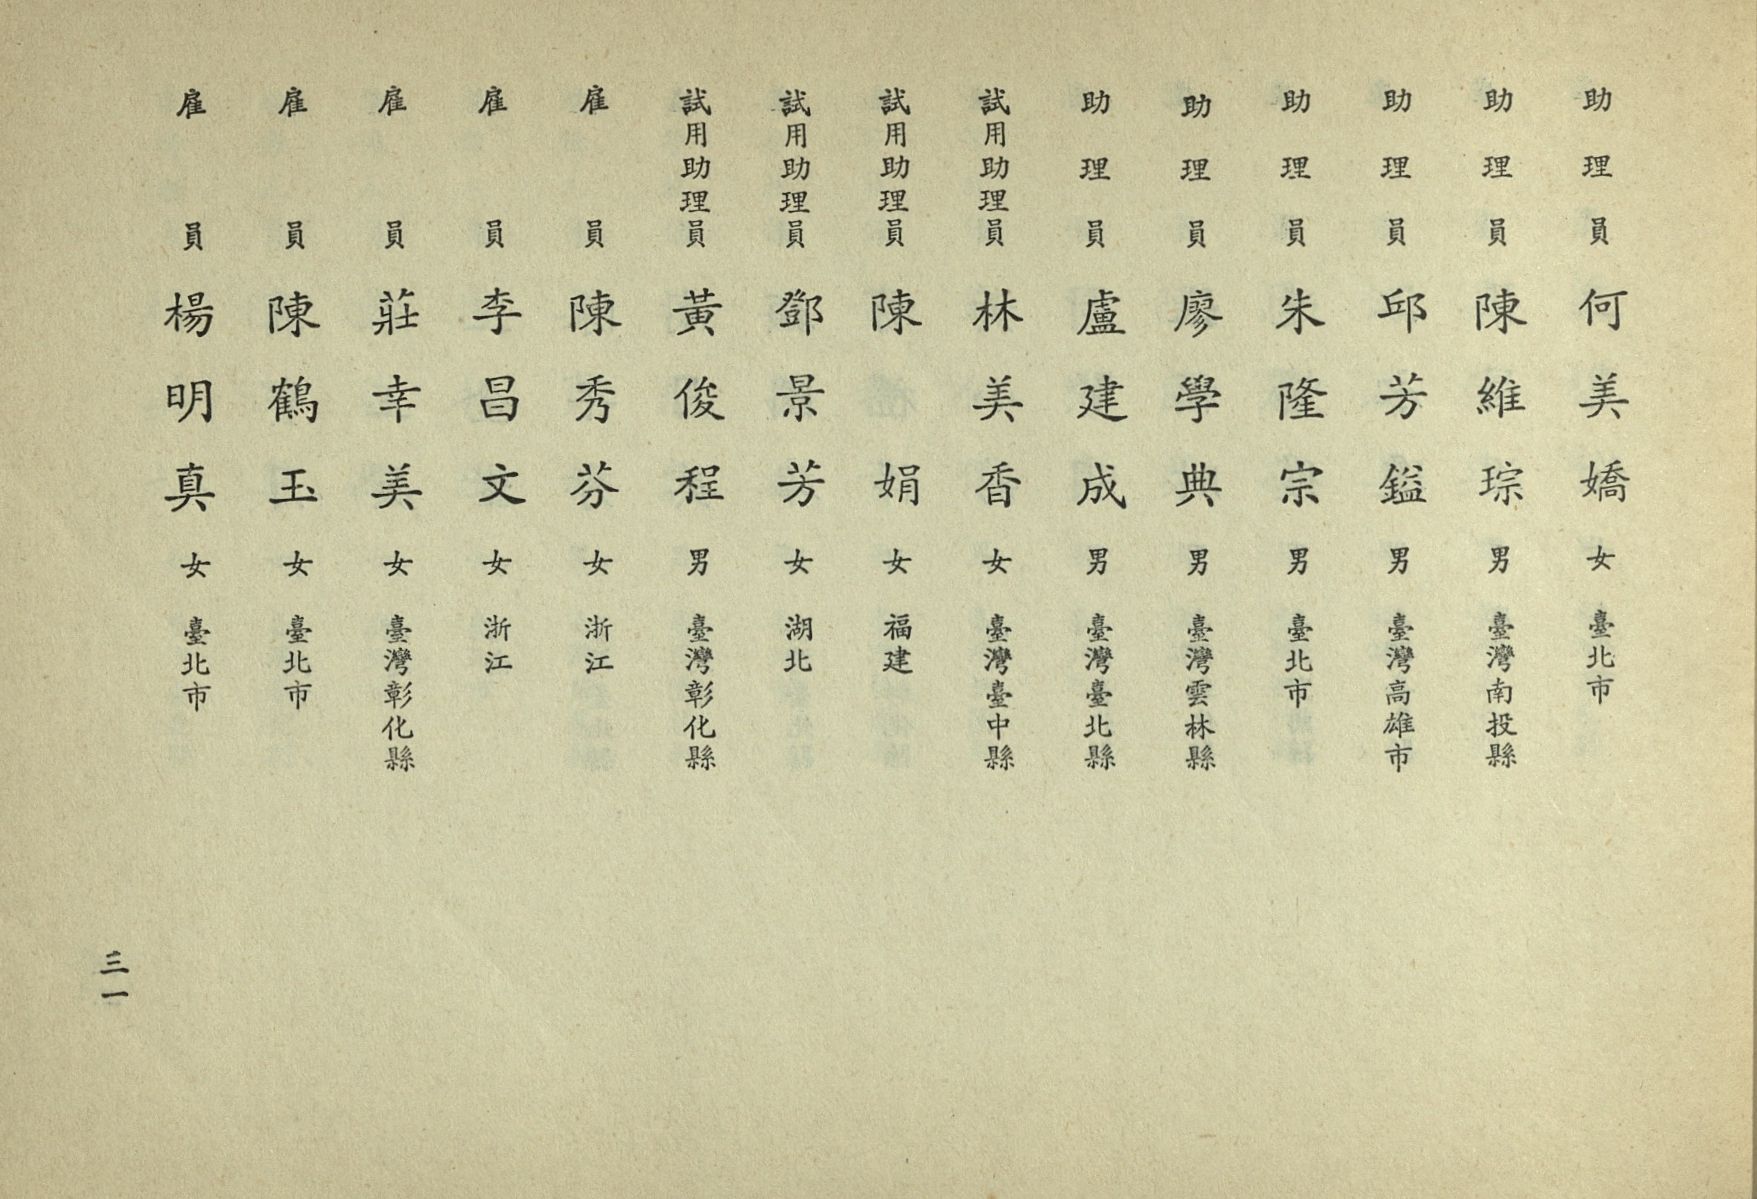 助理員 何美嬌 女 臺北市
助理員 陳維琮 男 臺灣南投縣
助理員 邱芳鎰 男 臺灣高雄市
助理員 朱隆宗 男 臺北市
助理員 廖學典 男 臺灣雲林縣
助理員 盧建成 男 臺灣臺北縣
試用助理員 林美香 女 臺灣臺中縣
試用助理員 陳娟 女 福建
試用助理員 鄧景芳 女 湖北
試用助理員 黃俊程 男 臺灣彰化縣
雇員 陳秀芬 女 浙江
雇員 李昌文 女 浙江
雇員 莊幸美 女 臺灣彰化縣
雇員 陳鶴玉 女 臺北市
雇員 楊明真 女 臺北市
三一